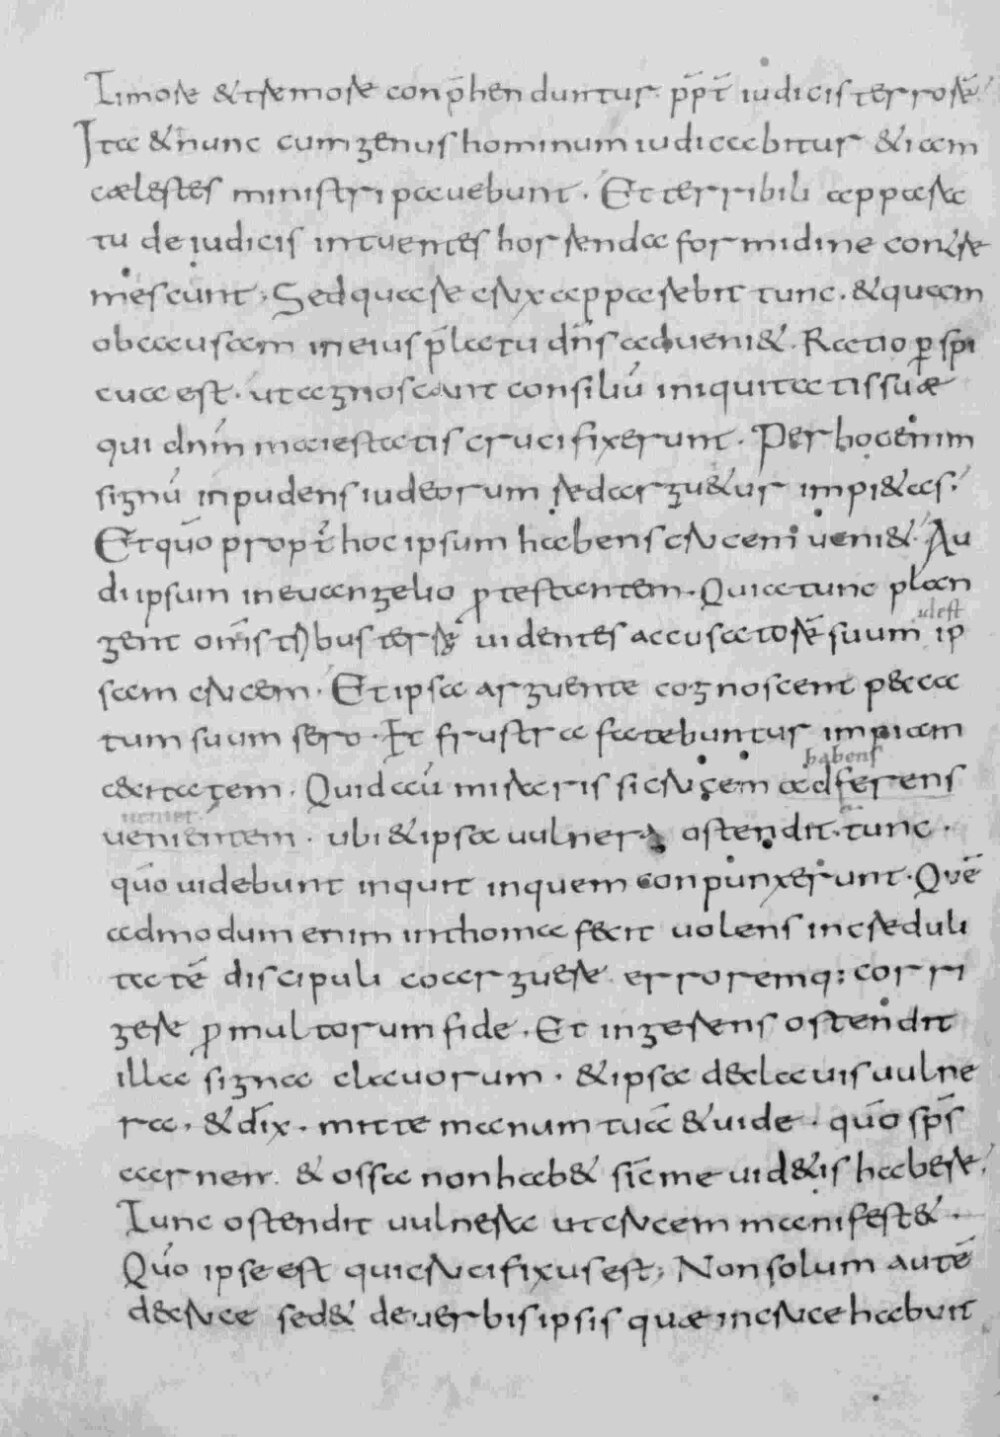 Timore & tremore conp̄henduntur. pp̄t iudicis terrorē.
Ita & nunc cum genus hominum iudicabitur & iam
cælestes ministri pauebunt. Et terribili appara
tu de iudicis intuentes horrenda formidine contre
mescunt; Sed quare crux apparebit tunc. & quam
ob causam in eius p̄latu dn̄s adueni&. Ratio ꝑspi
cua est. ut agnoscant consiliū iniquitatis suæ
qui dnm̄ maiestatis crucifixerunt. Per hoc enim
signū inpudens iudeorum redargu&ur impi&as;
Et quō propt̄ hoc ipsum habens crucem ueni&. Au
di ipsum in euangelio ꝓtestantem. Quia tunc plan
gent om̄s tribus terrę uidentes accusatorē suum
idest
ip
sam crucem. Et ipsa arguente cognoscent pecca
tum suum sero. Et frustra fatebuntur impiam
habens
c&itatem. Quid aū miraris si crucem adferens
ueniet
uenientem. ubi & ipsa uulnera ostendit. tunc.
quō uidebunt inquit in quem conpunxerunt. Quē
admodum enim in thoma fecit uolens increduli
tatē discipuli coarguere erroremq: corri
gere ꝓ multorum fide. Et ingerens ostendit
illa signa clauorum. & ipsa declauis uulne
ra. & dix̄. mitte manum tuā & uide. quō sp̄s
carnem & ossa non hab& sic̄ me uid&is habere.
Tunc ostendit uulnera ut crucem manifest&.
Quō ipse est qui crucifixus est; Non solum autē
de cruce sed & de uerbis ipsis quæ in cruce habuit